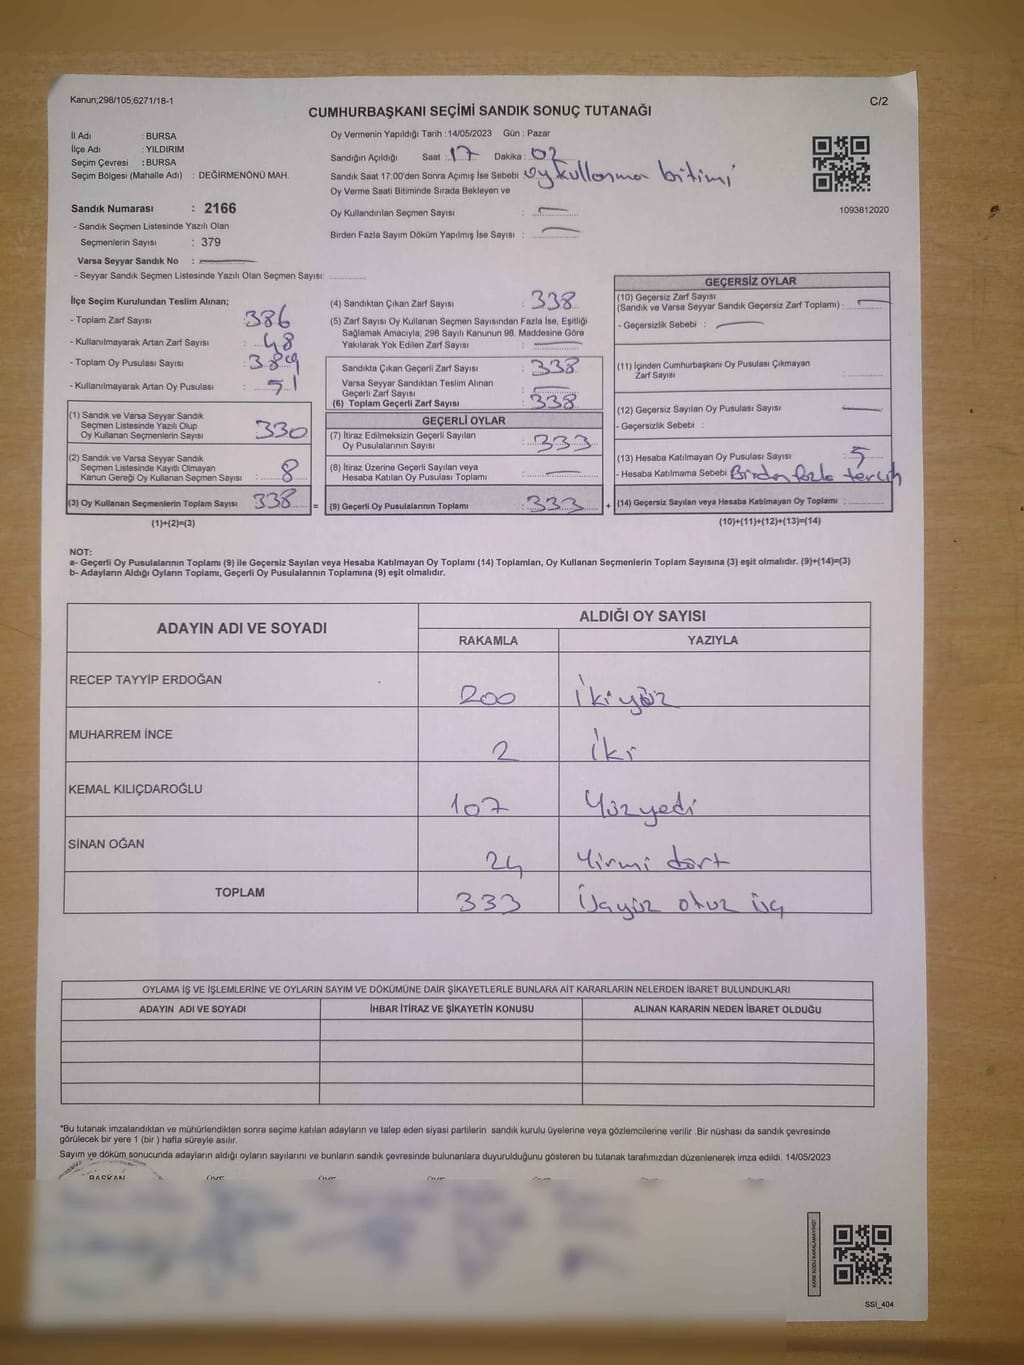 Kanun;298/105;6271/18-1
C/2
CUMHURBAŞKANI SEÇİMİ SANDIK SONUÇ TUTANAĞI
İl Adı : BURSA
İlçe Adı : YILDIRIM
Seçim Çevresi : BURSA
Seçim Bölgesi (Mahalle Adı) : DEĞİRMENÖNÜ MAH.
Sandık Numarası : 2166
- Sandık Seçmen Listesinde Yazılı Olan
Seçmenlerin Sayısı : 379
Varsa Seyyar Sandık No :
- Seyyar Sandık Seçmen Listesinde Yazılı Olan Seçmen Sayısı:
Oy Vermenin Yapıldığı Tarih : 14/05/2023 Gün : Pazar
Sandığın Açıldığı Saat : 17 Dakika : 02
Sandık Saat 17:00'den Sonra Açımış İse Sebebi : oy kullanma bitimi
Oy Verme Saati Bitiminde Sırada Bekleyen ve
Oy Kullandırılan Seçmen Sayısı :
Birden Fazla Sayım Döküm Yapılmış İse Sayısı :
1093812020
İlçe Seçim Kurulundan Teslim Alınan;
- Toplam Zarf Sayısı : 386
- Kullanılmayarak Artan Zarf Sayısı : 48
- Toplam Oy Pusulası Sayısı : 389
- Kullanılmayarak Artan Oy Pusulası : 51
(1) Sandık ve Varsa Seyyar Sandık
Seçmen Listesinde Yazılı Olup
Oy Kullanan Seçmenlerin Sayısı : 330
(2) Sandık ve Varsa Seyyar Sandık
Seçmen Listesinde Kayıtlı Olmayan
Kanun Gereği Oy Kullanan Seçmen Sayısı : 8
(3) Oy Kullanan Seçmenlerin Toplam Sayısı 338 =
(1)+(2)=(3)
(4) Sandıktan Çıkan Zarf Sayısı : 338
(5) Zarf Sayısı Oy Kullanan Seçmen Sayısından Fazla İse, Eşitliği
Sağlamak Amacıyla; 298 Sayılı Kanunun 98. Maddesine Göre
Yakılarak Yok Edilen Zarf Sayısı :
Sandıkta Çıkan Geçerli Zarf Sayısı : 338
Varsa Seyyar Sandıktan Teslim Alınan
Geçerli Zarf Sayısı :
(6) Toplam Geçerli Zarf Sayısı : 338
GEÇERLİ OYLAR
(7) İtiraz Edilmeksizin Geçerli Sayılan
Oy Pusulalarının Sayısı : 333
(8) İtiraz Üzerine Geçerli Sayılan veya
Hesaba Katılan Oy Pusulası Toplamı :
(9) Geçerli Oy Pusulalarının Toplamı : 333 +
GEÇERSİZ OYLAR
(10) Geçersiz Zarf Sayısı
(Sandık ve Varsa Seyyar Sandık Geçersiz Zarf Toplamı) :
- Geçersizlik Sebebi :
(11) İçinden Cumhurbaşkanı Oy Pusulası Çıkmayan
Zarf Sayısı :
(12) Geçersiz Sayılan Oy Pusulası Sayısı :
- Geçersizlik Sebebi :
(13) Hesaba Katılmayan Oy Pusulası Sayısı : 5
- Hesaba Katılmama Sebebi : Birden fazla tercih
(14) Geçersiz Sayılan veya Hesaba Katılmayan Oy Toplamı :
(10)+(11)+(12)+(13)=(14)
NOT:
a- Geçerli Oy Pusulalarının Toplamı (9) ile Geçersiz Sayılan veya Hesaba Katılmayan Oy Toplamı (14) Toplamları, Oy Kullanan Seçmenlerin Toplam Sayısına (3) eşit olmalıdır. (9)+(14)=(3)
b- Adayların Aldığı Oyların Toplamı, Geçerli Oy Pusulalarının Toplamına (9) eşit olmalıdır.
ADAYIN ADI VE SOYADI
ALDIĞI OY SAYISI
RAKAMLA YAZIYLA
RECEP TAYYİP ERDOĞAN 200 İkiyüz
MUHARREM İNCE 2 İki
KEMAL KILIÇDAROĞLU 107 Yüzyedi
SİNAN OĞAN 24 Yirmi dört
TOPLAM 333 Üçyüz otuz üç
OYLAMA İŞ VE İŞLEMLERİNE VE OYLARIN SAYIM VE DÖKÜMÜNE DAİR ŞİKAYETLERLE BUNLARA AİT KARARLARIN NELERDEN İBARET BULUNDUKLARI
ADAYIN ADI VE SOYADI İHBAR İTİRAZ VE ŞİKAYETİN KONUSU ALINAN KARARIN NEDEN İBARET OLDUĞU
*Bu tutanak imzalandıktan ve mühürlendikten sonra seçime katılan adayların ve talep eden siyasi partilerin sandık kurulu üyelerine veya gözlemcilerine verilir .Bir nüshası da sandık çevresinde
görülecek bir yere 1 (bir ) hafta süreyle asılır.
Sayım ve döküm sonucunda adayların aldığı oyların sayılarını ve bunların sandık çevresinde bulunanlara duyurulduğunu gösteren bu tutanak tarafımızdan düzenlenerek imza edildi. 14/05/2023
BAŞKAN ÜYE ÜYE ÜYE ÜYE ÜYE ÜYE
SSİ_404